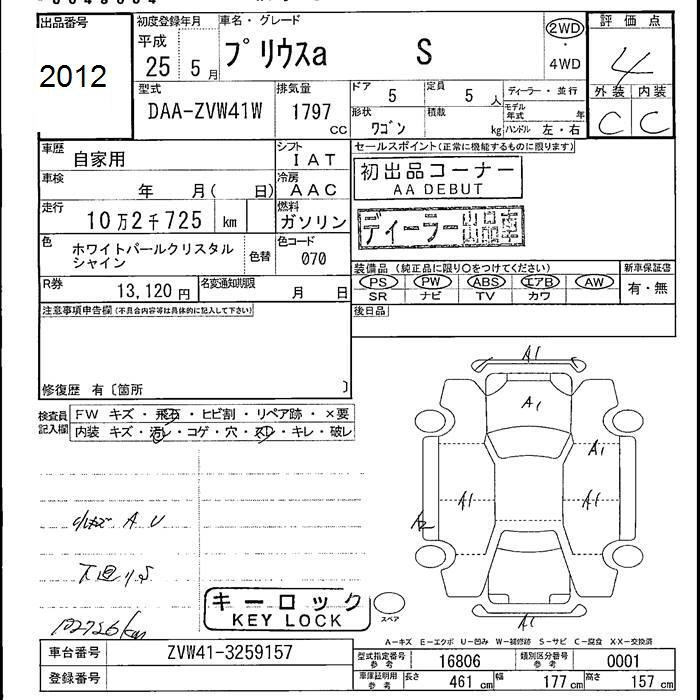 出品番号
2012
初度登録年月
平成
25 5月
車名・グレード
プリウスa S
2WD
・
4WD
評価点
4
外装 内装
C C
型式
DAA-ZVW41W
排気量
1797
CC
ドア
5
定員
5 人
形状
ワゴン
積載
kg
ディーラー・並行
モデル年式 年
ハンドル 左・右
車歴
自家用
シフト
IAT
車検
年 月( 日)
冷房
AAC
走行
10万2千725 km
燃料
ガソリン
色
ホワイトパールクリスタル
シャイン
色替
色コード
070
R券
13,120 円
名変通知期限
月 日
セールスポイント(正常に機能するものに限ります)
初出品コーナー
AA DEBUT
ディーラー出品車
装備品 (純正品に限り○をつけてください)
新車保証書
PS PW ABS エアB AW
有・無
SR ナビ TV カワ
後日品
注意事項申告欄(不具合内容等は具体的に記入して下さい)
修復歴 有〔箇所 〕
検査員
記入欄
FW キズ・飛石・ヒビ割・リペア跡・×要
内装 キズ・汚レ・コゲ・穴・スレ・キレ・破レ
小キズ A U
下廻りS
102726km
A1
A1
A1
A1
A1
A2
A1
キーロック
KEY LOCK
スペア
A-キズ E-エクボ U-凹み W-補修跡 S-サビ C-腐食 XX-交換済
車台番号
ZVW41-3259157
登録番号
型式指定番号
参考
16806
類別区分番号
参考
0001
車庫証明用
参考
長さ
461 cm
幅
177 cm
高さ
157 cm